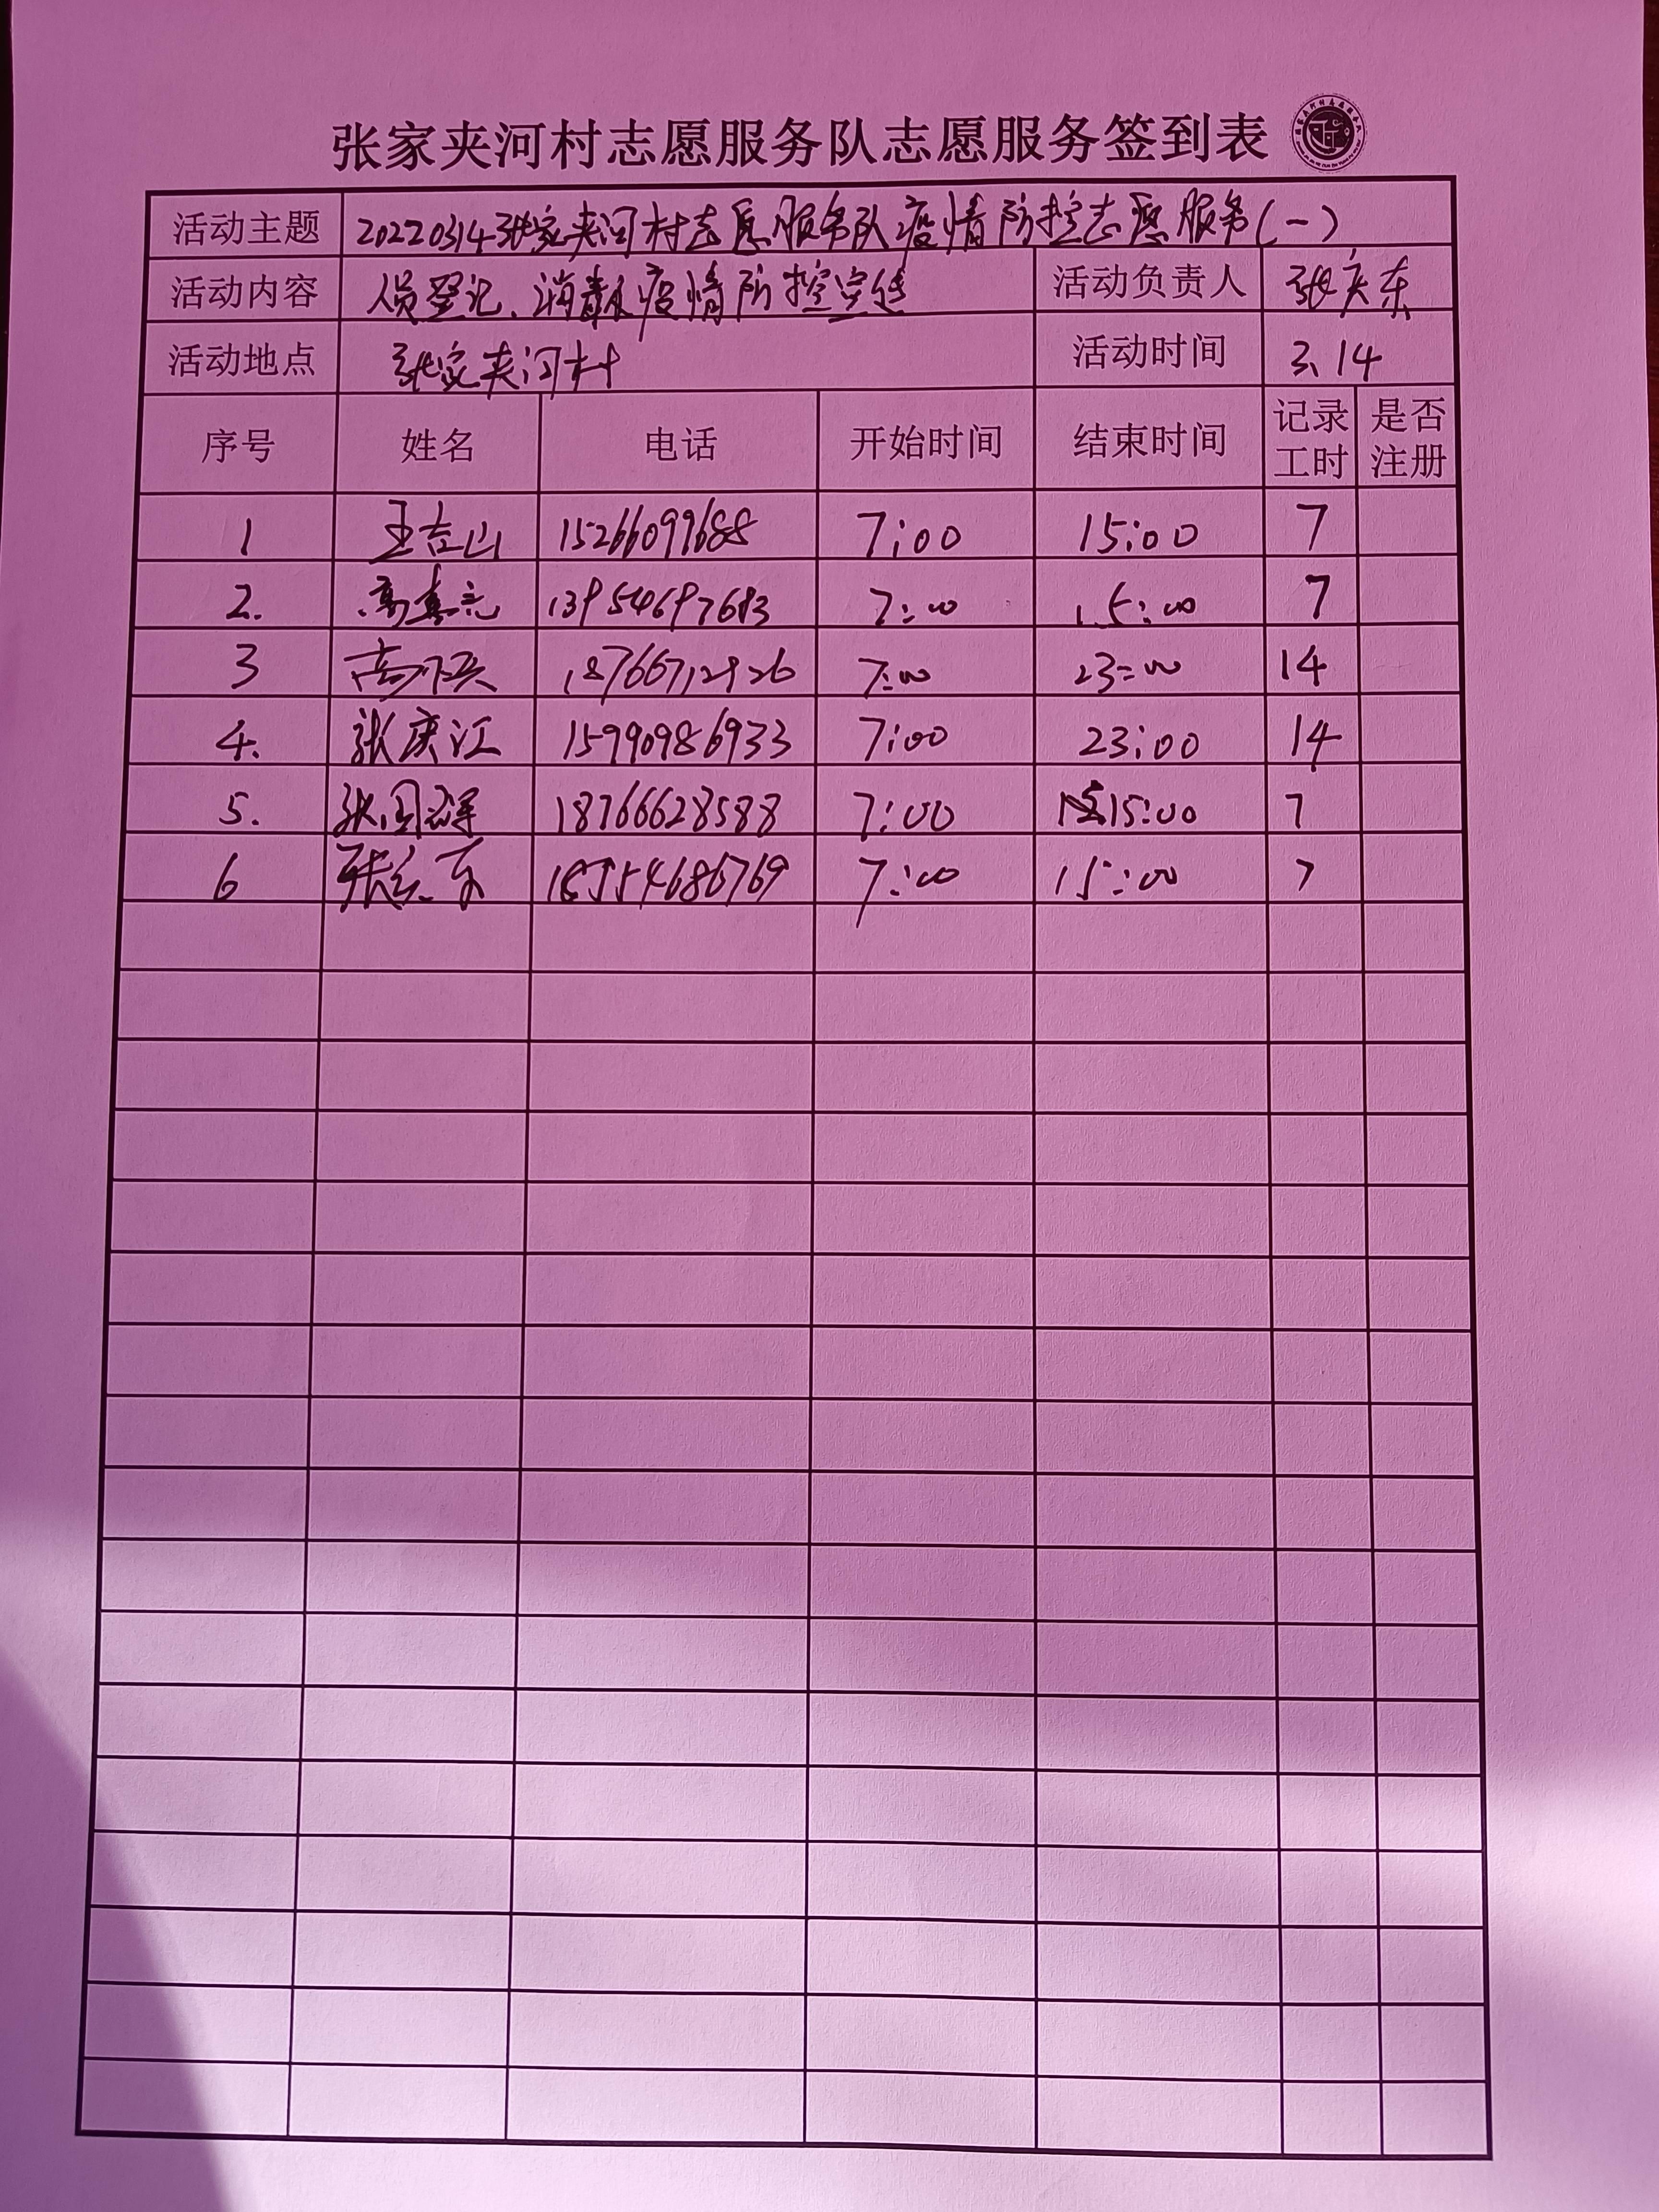 张家夹河村志愿服务队志愿服务签到表
活动主题 20220314张家夹河村志愿服务队疫情防控志愿服务(一)
活动内容 人员登记、消毒及疫情防控宣传 活动负责人 张庆东
活动地点 张家夹河村 活动时间 3.14
序号 姓名 电话 开始时间 结束时间 记录工时 是否注册
1 王吉山 15266099688 7:00 15:00 7
2. 7:00 15:00 7
3 23:00 14 7:00
4. 张庆江 15990986933 7:00 23:00 14
5. 18766628588 7:00 15:00 7
6 7:00 15:00 7